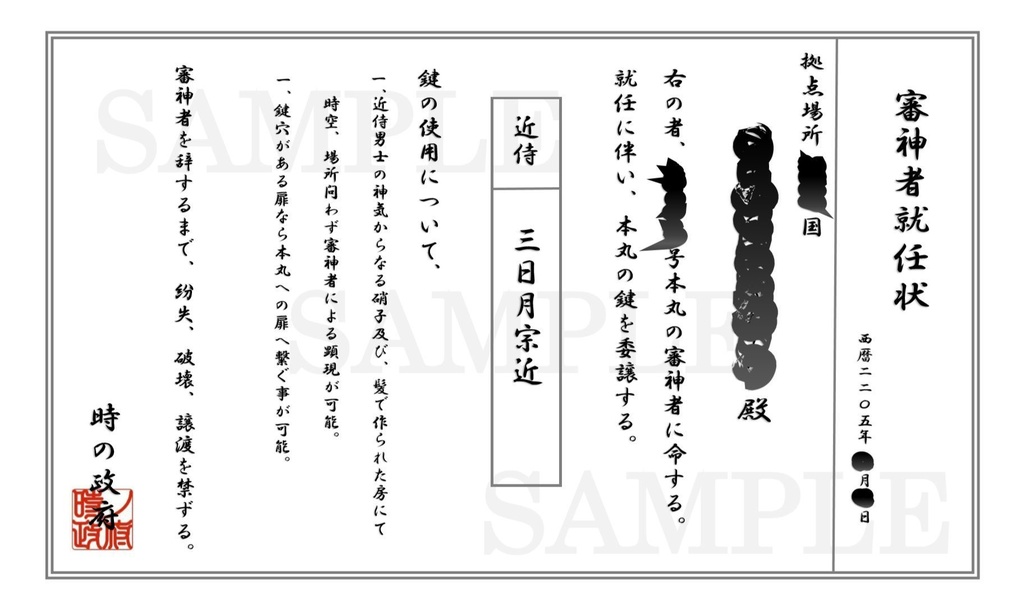 審神者就任状
西暦二二〇五年 月 日
拠点場所 国
殿
右の者、 号本丸の審神者に命する。
就任に伴い、本丸の鍵を委譲する。
近侍
三日月宗近
鍵の使用について、
一、近侍男士の神気からなる硝子及び、髪で作られた房にて
時空、場所問わず審神者による顕現が可能。
一、鍵穴がある扉なら本丸への扉へ繋ぐ事が可能。
審神者を辞するまで、紛失、破壊、譲渡を禁ずる。
時の政府
SAMPLE
SAMPLE
SAMPLE